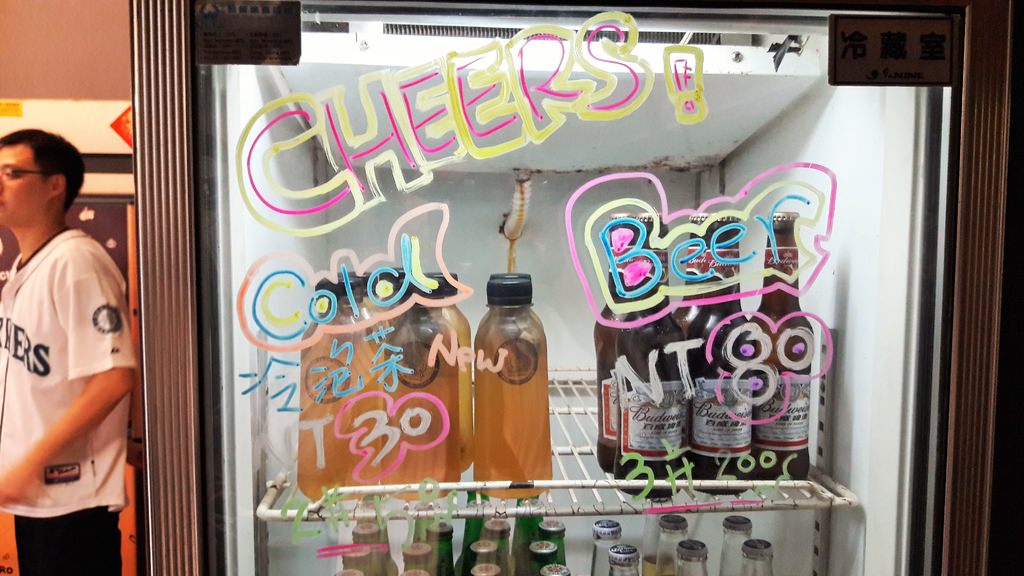 CHEERS!
冷藏室
Cold
Beer
冷泡茶
New
NT 30
NT 80
Budweiser
百威啤酒
Budweiser
百威啤酒
Budweiser
百威啤酒
3 200